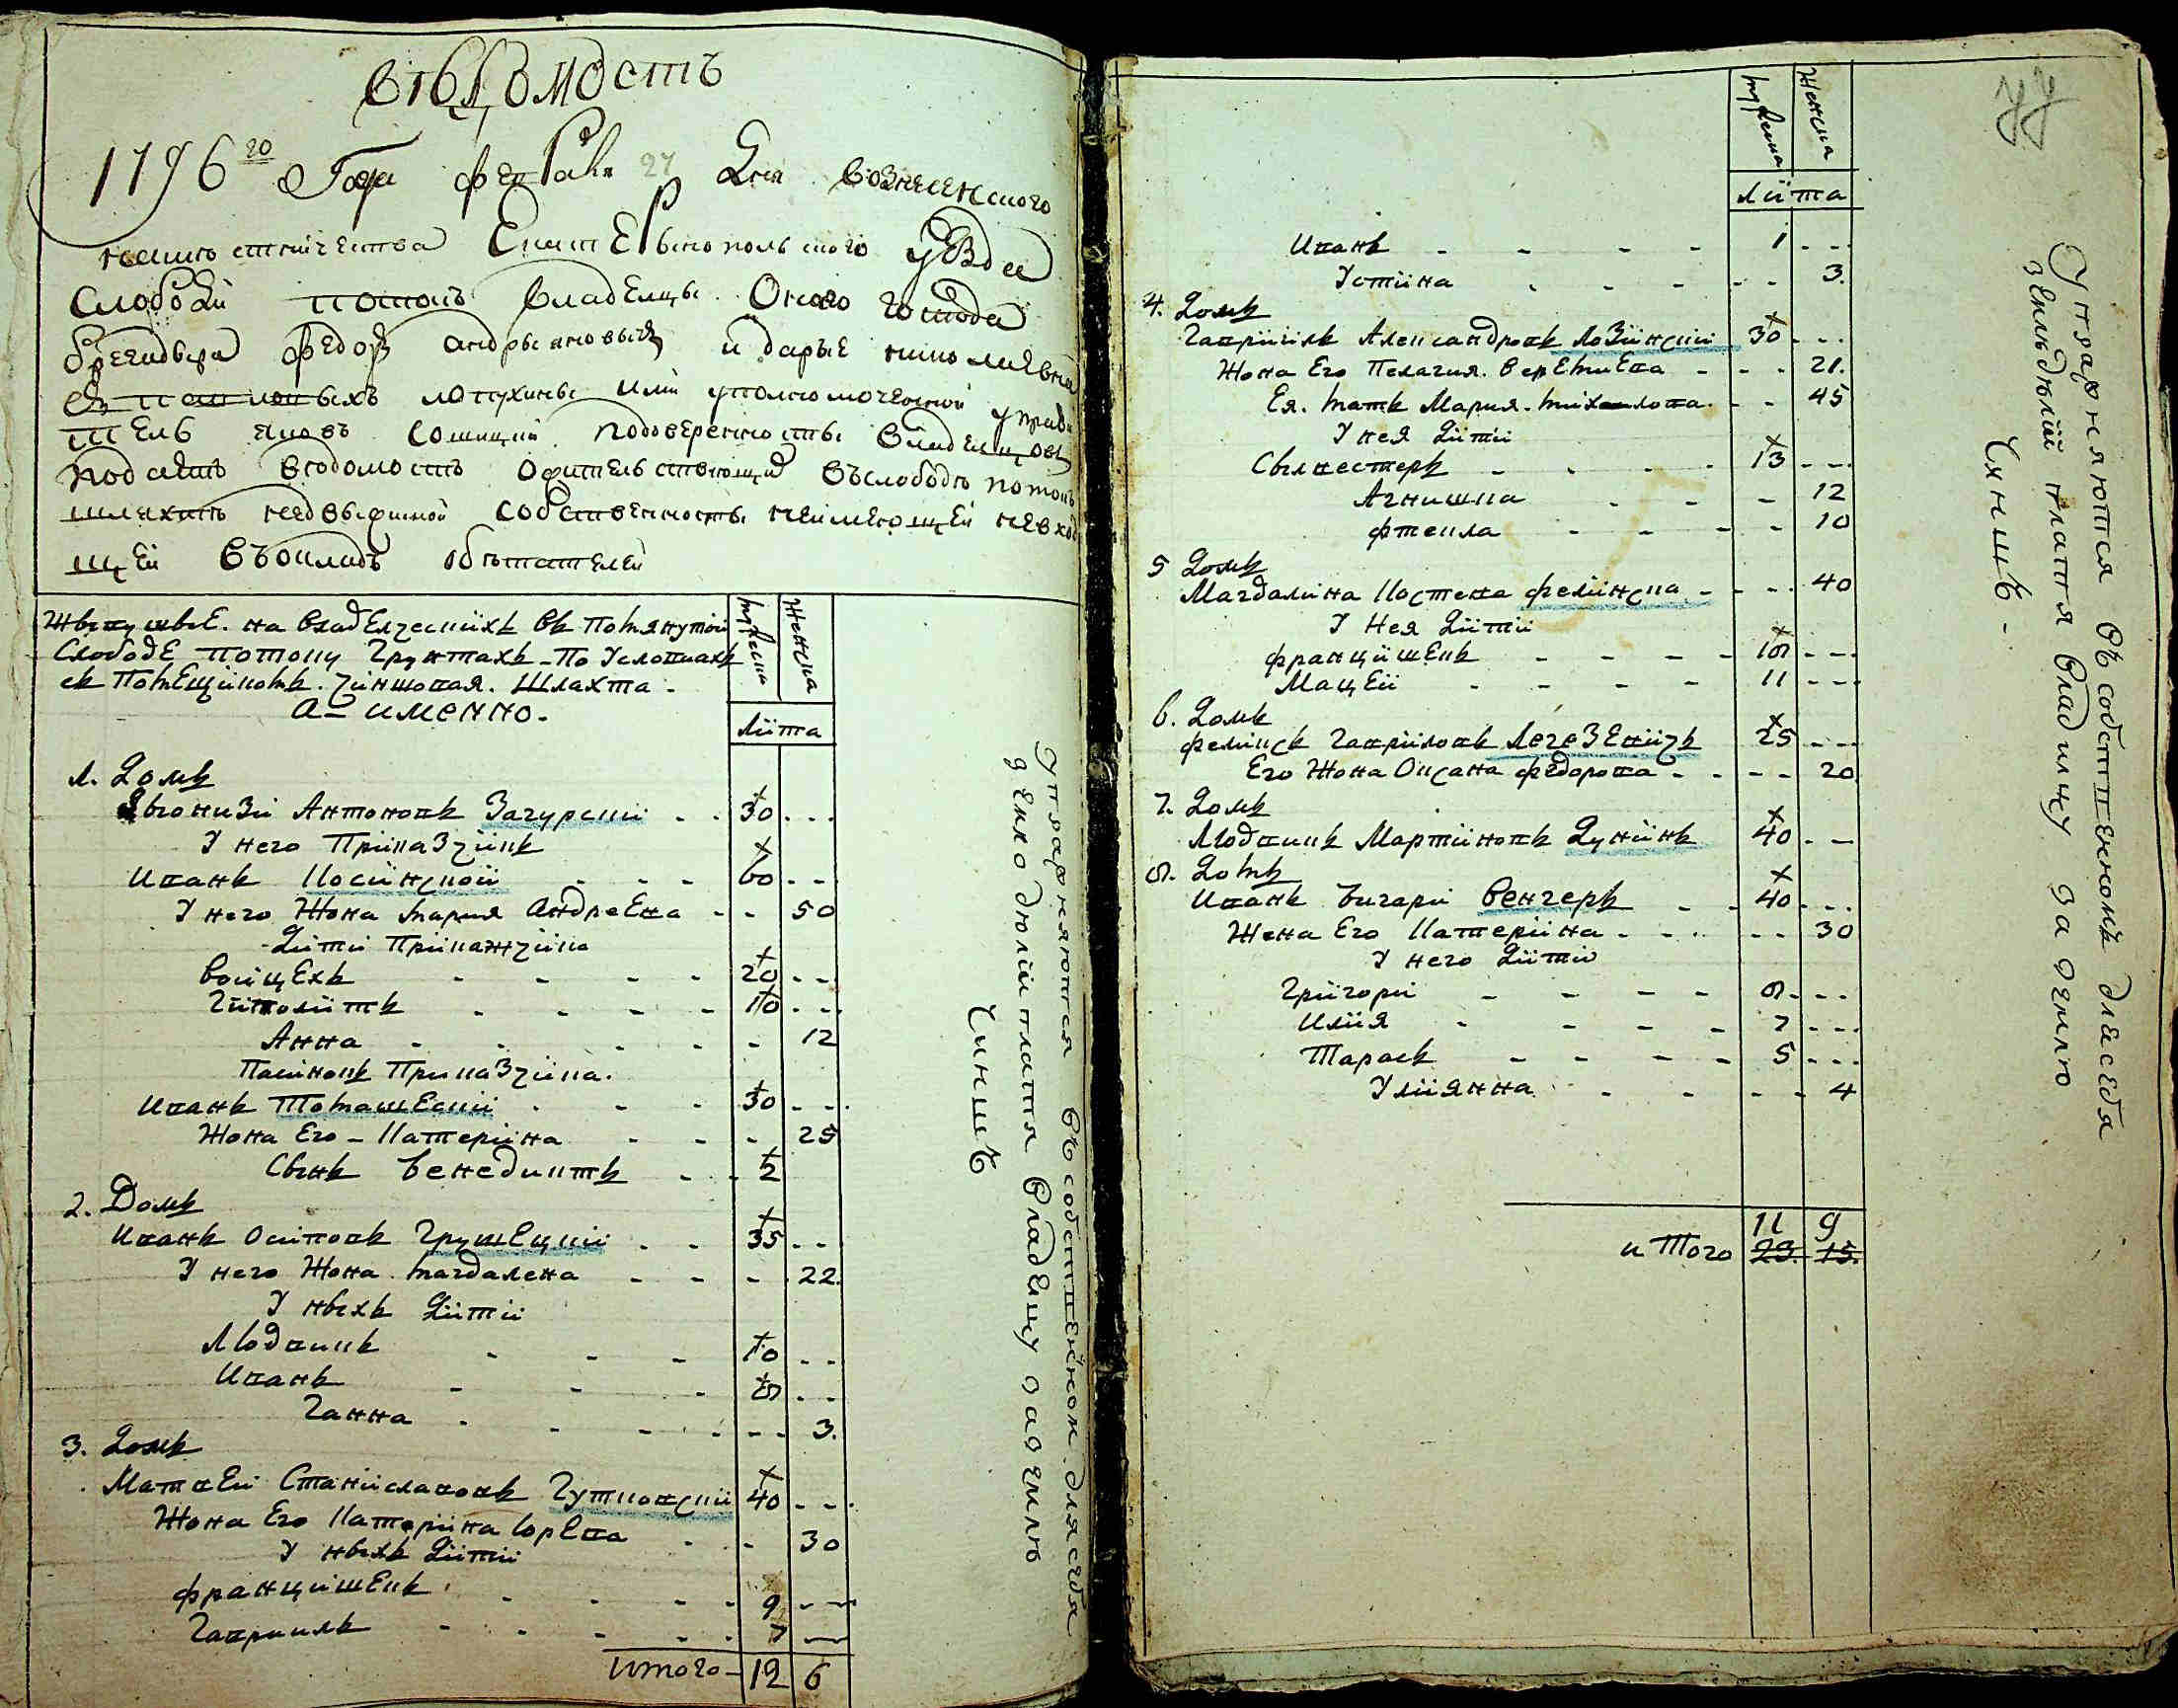 Вѣдомость
1796го Года февраля 27 Дня вознесенского
намѣстничества Екатеринопольского уезда
Слободи потокъ владелцы Оного господа
брегадира федора андрыяновича и дарые николаевна
лопухины или уполномоченной
тель яковъ сошицкий подоверенности владелцовъ
подаетъ ведомость о жительствующей въслободѣ потокъ
шляхтѣ недвыжимой собственности неимеющей невходя
щей въокладъ обѣтателей
Жывущые. на владелческихъ въ Помянутой
Слободе потоку Грунтахъ По Условиахъ
съ Помещикомъ. Чиншовая. Шлахта.
а имеННо.
мужеска
женска
Лѣта
1. Домъ
Антоновъ Загурский 30
У него Приказчикъ
Иванъ Косинской 60
У него Жона мария АндреЕва 50
Дѣти Прикажчика
войцЕхъ 20
Гиполитъ 10
Анна 12
Пасинокъ Приказчика.
Иванъ ТомашЕский 30
Жона Его Катерина 25
Сынъ венедиктъ 2
2. Домъ
Иванъ Осиповъ ГрушЕцкий 35
У него Жона магдалена 22.
У ныхъ Дѣти
Людвикъ 10
Иванъ 8
Ганна 3.
3. Домъ
МатвЕй Станиславовъ Гутковский 40
Жона Его Катерина ЮрЕва 30
У ныхъ Дѣти
францишЕкъ 9
Гавриилъ 7
итого 12 6
Управняются въ собственном для себя
платя владЕлцу за землю
Чиншъ
мужеска
женска
Лѣта
Иванъ 1
Устина 3.
4. Домъ
Гаврѣилъ Александровъ Лозинский 30
Жона Его Пелагия. 21.
Ея. мать Мария. михайлова. 45
У нея Дѣти
Сылвестеръ 13
Агнишка 12
фтекла 10
5 Домъ
Магдалина Костева фелинска 40
У Нея Дѣти
францишЕкъ 18
Мацей 11
6. Домъ
феликсъ Гавриловъ ЛегезЕвичъ 25
Его Жона Оксана федорова 20
7. Домъ
Людвикъ Мартиновъ Дунинъ 40
8. Домъ
Иванъ вигари венгеръ 40
Жена Его Катерина 30
У него Дѣти
Григори 8
Илия 7
Тарасъ 5
Улиянна 4
и Того 11 9
23. 15.
Управняются въ собственномъ длесебя
платя владилцу за землю
Чиншъ